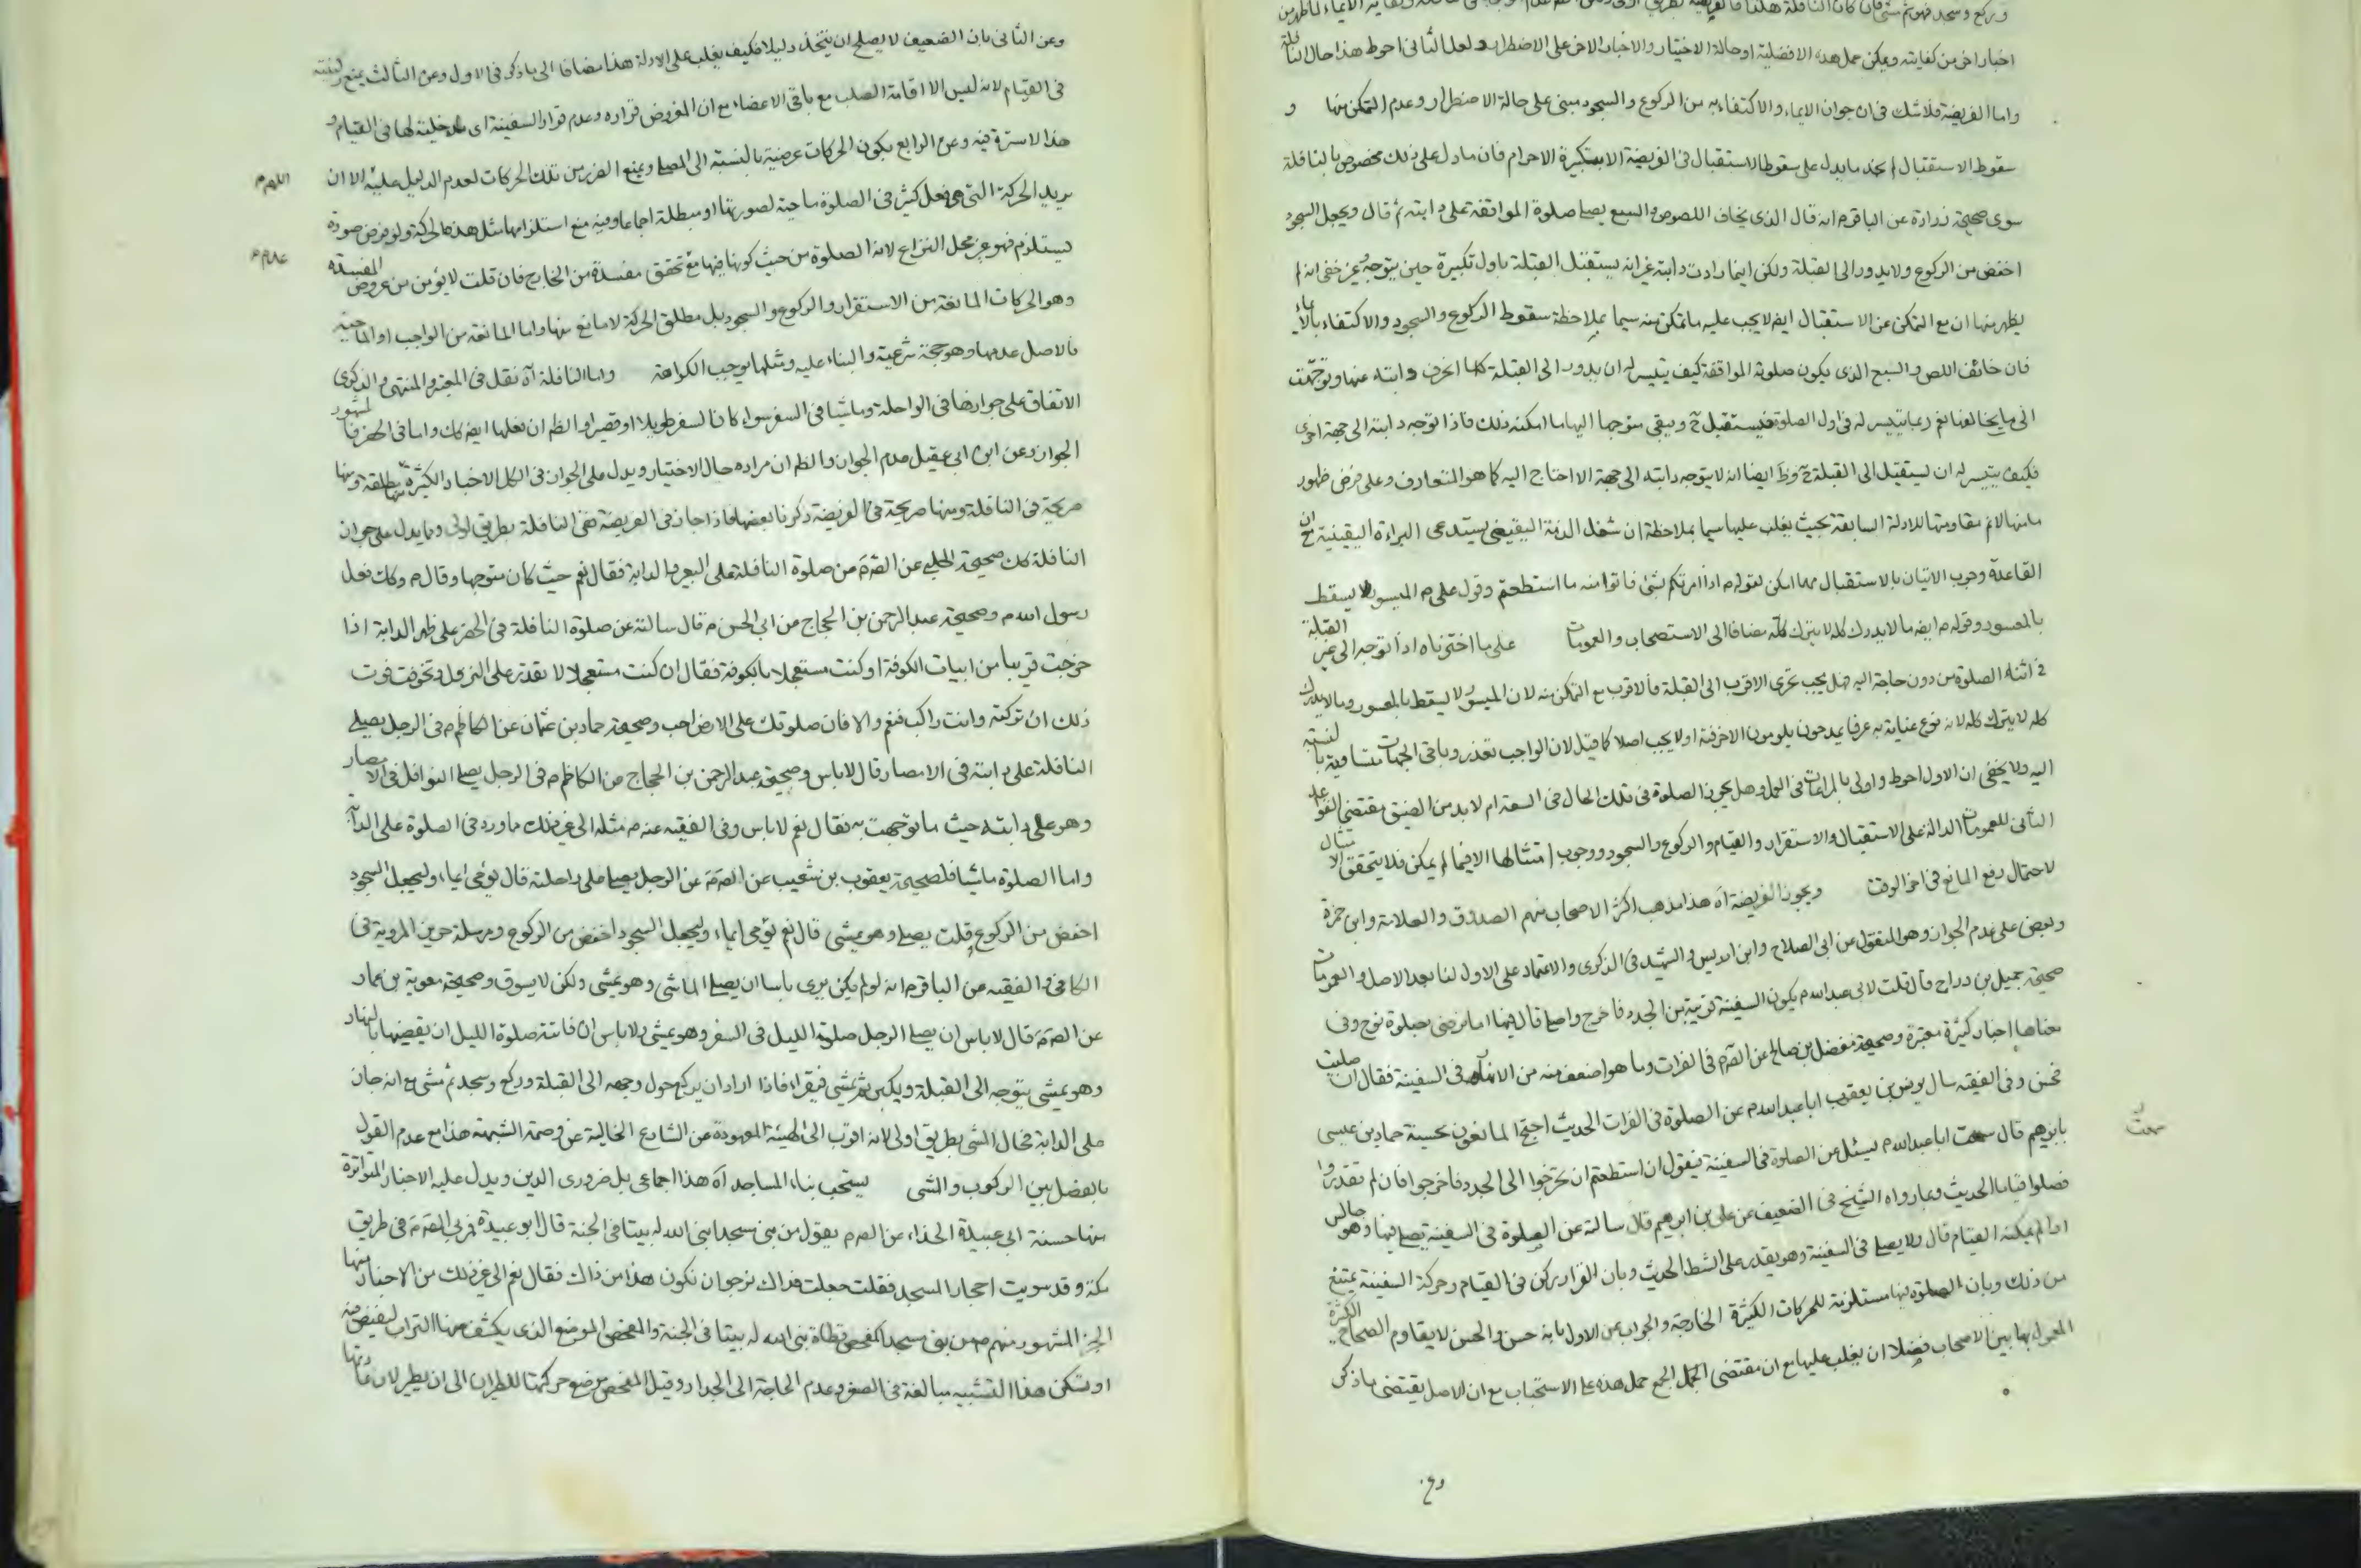 اخبار اخر من كفايته ويمكن حمل هذه الافضلية او حالة الاختيار والاخبار الاخر على الاضطرار ولعل الثانى احوط هذا حال النافلة
واما الفريضة فلا شك فى ان جواز الايماء والاكتفاء به من الركوع والسجود مبنى على حالة الاضطرار وعدم التمكن منها و
سقوط الاستقبال لم نجد ما يدل على سقوط الاستقبال فى الفريضة الا بتكبيرة الاحرام فان ما دل على ذلك مخصوص بالنافلة
سوى صحيحة زرارة عن الباقر م انه قال الذى يخاف اللصوص والسبع يصلى صلوة المواقفة على دابته ثم قال ويجعل السجود
اخفض من الركوع ولا يدور الى القبلة ولكن اينما دارت دابته غير انه يستقبل القبلة باول تكبيرة حين يتوجه وغير خفى انه لم
يظهر منها ان مع التمكن عن الاستقبال ايضا لا يجب عليه ما تمكن منه سيما بملاحظة سقوط الركوع والسجود والاكتفاء بالايماء
فان خائف اللص والسبع الذى يكون صلوته المواقفة كيف يتيسر له ان يدور الى القبلة كلما انحرف دابته عنها وتوجهت
الى ما يخالفها نعم ربما يتيسر له فى اول الصلوة فيستقبل ح ويبقى متوجها اليها ما امكنه ذلك فاذا توجه دابته الى جهة اخرى
فكيف يتيسر له ان يستقبل الى القبلة ح وظ ايضا انه لا يتوجه دابته الى جهة الا احتاج اليه كما هو المتعارف وعلى فرض ظهور
ما منها لا نم مقاومتها للادلة السابقة بحيث يغلب عليها سيما بملاحظة ان شغل الذمة اليقينى يستدعى البراءة اليقينية مع ان
القاعدة وجوب الاتيان بالاستقبال مهما امكن لقوله م اذا امرتكم بشئ فاتوا منه ما استطعتم وقول على م الميسور لا يسقط
بالمعسور وقوله م ايضا ما لا يدرك كله لا يترك كله مضافا الى الاستصحاب والعمومات على ما اخترناه اذا توجه الى غير القبلة
فى اثناء الصلوة من دون حاجة اليه هل يجب تحرى الاقرب الى القبلة فالاقرب مع التمكن منه لان الميسور لا يسقط بالمعسور وما لا يدرك
كله لا يترك كله لانه نوع عناية به عرفا يمدحون يلومون الاخر فتة اولا يجب اصلا كما قيل لان الواجب تعذر وباقى الجهات متساوية بالنسبة
اليه ولا يخفى ان الاول احوط واولى بالمراعات فى العمل وهل يجوز الصلوة فى تلك الحال فى السعة ام لا بد من الضيق مقتضى القواعد
الثانى للعمومات الدالة على الاستقبال والاستقرار والقيام والركوع والسجود ووجوب امتثالها الا فيما لم يمكن فلا يتحقق الامتثال
لاحتمال رفع المانع فى اخر الوقت ويجوز الفريضة آه هذا مذهب اكثر الاصحاب منهم الصدوق والعلامة وابن حمزة
وبعض على عدم الجواز وهو المنقول عن ابى الصلاح وابن ادريس والشهيد فى الذكرى والاعتماد على الاول لنا بعد الاصل والعمومات
صحيحة جميل بن دراج قال قلت لابى عبد الله م يكون السفينة قريبة من الجدد فاخرج واصلى قال فيها اما ترضى بصلوة نوح وفى
معناها اخبار كثيرة معتبرة وصحيحة مفضل بن صالح عن الصادق م فى الفرات وما هو اضعف منه من الانهار فى السفينة فقال ان صليت
فحسن وفى الفقيه سال يونس بن يعقوب ابا عبد الله م عن الصلوة فى الفرات الحديث احتج المانعون بحسنة حماد بن عيسى
بابرهيم قال سمعت ابا عبد الله م يسئل عن الصلوة فى السفينة فيقول ان استطعتم ان تخرجوا الى الجدد فاخرجوا فان لم تقدروا
فصلوا قياما الحديث وبما رواه الشيخ فى الضعيف عن على بن ابراهيم قال سالته عن الصلوة فى السفينة يصلى فيها وهو جالس
اذا لم يمكنه القيام قال ولا يصلى فى السفينة وهو يقدر على الشط الحديث وبان القرار ركن فى القيام وحركة السفينة يمنع
من ذلك وبان الصلوة فيها مستلزمة للحركات الكثيرة الخارجة والجواب عن الاول بانه حسن والحسن لا يقاوم الصحاح الكثيرة
المعمول بها بين الاصحاب فضلا ان يغلب عليها مع ان مقتضى الجمع حمل هذه على الاستحباب مع ان الاصل يقتضى ما ذكر
وع
وعن الثانى بان الضعيف لا يصلح ان يتخذ دليلا فكيف يغلب على الادلة هذا مضافا الى ما ذكر فى الاول وعن الثالث بمنع ركنيته
فى القيام لانه ليس الا اقامة الصلب مع باقى الاعضاء مع ان المفروض قراره وعدم قرار السفينة اى مدخلية لها فى القيام و
هذا لا سترة فيه وعن الرابع بكون الحركات عرضية بالنسبة الى المصلى ويمنع الضرر من تلك الحركات لعدم الدليل عليه الا ان
اللهم
يريد الحركة التى هى فعل كثير فى الصلوة ماحية لصورتها او مبطلة اجماعا وفيه منع استلزامها مثل هذه الحركة ولو فرض صورة
يستلزم فهو عن محل النزاع لان الصلوة من حيث كونها فيها مع تحقق مفسدة من الخارج فان قلت لا يؤمن من عروض المفسدة
وهو الحركات المانعة من الاستقرار والركوع والسجود بل مطلق الحركة لا مانع منها واما المانعة من الواجب او الماحية
فالاصل عدمها وهو حجة شرعية والبناء عليه ومثلها يوجب الكراهة واما النافلة آه نقل فى المعتبر والمنتهى والذكرى
الاتفاق على جوازها فى الراحلة وماشيا فى السفر سواء كان السفر طويلا او قصيرا والظ ان نقلها ايضا كك واما فى الحضر فالمشهور
الجواز وعن ابن ابى عقيل عدم الجواز والظ ان مراده حال الاختيار ويدل على الجواز فى الكل الاخبار الكثيرة منها مطلقة ومنها
صريحة فى النافلة ومنها صريحة فى الفريضة ذكرنا بعضها فاذا جاز فى الفريضة ففى النافلة بطريق اولى ومما يدل على جواز
النافلة كك صحيحة الحلبى عن الصادق م عن صلوة النافلة على البعير والدابة فقال نعم حيث كان متوجها وقال م وكك فعل
رسول الله م وصحيحة عبد الرحمن بن الحجاج عن ابى الحسن م قال سالته عن صلوة النافلة فى الحضر على ظهر الدابة اذا
خرجت قريبا من ابيات الكوفة او كنت مستعجلا بالكوفة فقال ان كنت مستعجلا لا تقدر على النزول وتخوفت فوت
ذلك ان تركته وانت راكب فنعم والا فان صلوتك على الارض احب وصحيحة حماد بن عثمان عن الكاظم م فى الرجل يصلى
النافلة على دابته فى الامصار قال لا باس وصحيحة عبد الرحمن بن الحجاج عن الكاظم م فى الرجل يصلى النوافل فى الامصار
وهو على دابته حيث ما توجهت به فقال نعم لا باس وفى الفقيه عنه م مثله الى غير ذلك ما ورد فى الصلوة على الدابة
واما الصلوة ماشيا فلصحيحة يعقوب بن شعيب عن الصادق م عن الرجل يصلى على راحلته قال يومى ايماء وليجعل السجود
اخفض من الركوع قلت يصلى وهو يمشى قال نعم يؤمى ايماء وليجعل السجود اخفض من الركوع ومرسلة حريز المروية فى
الكافى والفقيه عن الباقر م انه لم يكن يرى باسا ان يصلى الماشى وهو يمشى ولكن لا يسوق وصحيحة معوية بن عمار
عن الصادق م قال لا باس ان يصلى الرجل صلوة الليل فى السفر وهو يمشى ولا باس ان فاتته صلوة الليل ان يقضيها بالنهار
وهو يمشى يتوجه الى القبلة ويكبر ثم يمشى فيقرا فاذا اراد ان يركع حول وجهه الى القبلة وركع وسجد ثم مشى مع انه جاز
على الدابة فحال المشى بطريق اولى لانه اقرب الى الهيئة المعهودة عن الشارع الخالية عن وصمة الشبهة هذا مع عدم القول
بالفصل بين الركوب والمشى يستحب بناء المساجد آه هذا اجماعى بل ضرورى الدين ويدل عليه الاخبار المتواترة
منها حسنة ابى عبيدة الحذاء عن الصادق م يقول من بنى مسجدا بنى الله له بيتا فى الجنة قال ابو عبيدة فمر بى الصادق م فى طريق
مكة وقد سويت احجارا لمسجد فقلت جعلت فداك نرجو ان تكون هذا من ذاك فقال نعم الى غير ذلك من الاخبار منها
الخبر المشهور منهم من بنى مسجدا كمفحص قطاة بنى الله له بيتا فى الجنة والمفحص الموضع الذى يكشف عنها التراب
هذا التشبيه مبالغة فى الصغر وعدم الحاجة الى الجدار وقيل المفحص موضع حركتها للطيران الى ان يطير لان